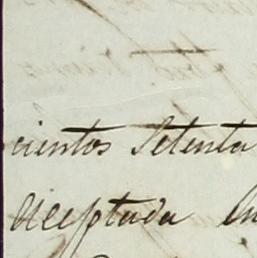 cientos Setenta
aceptada en